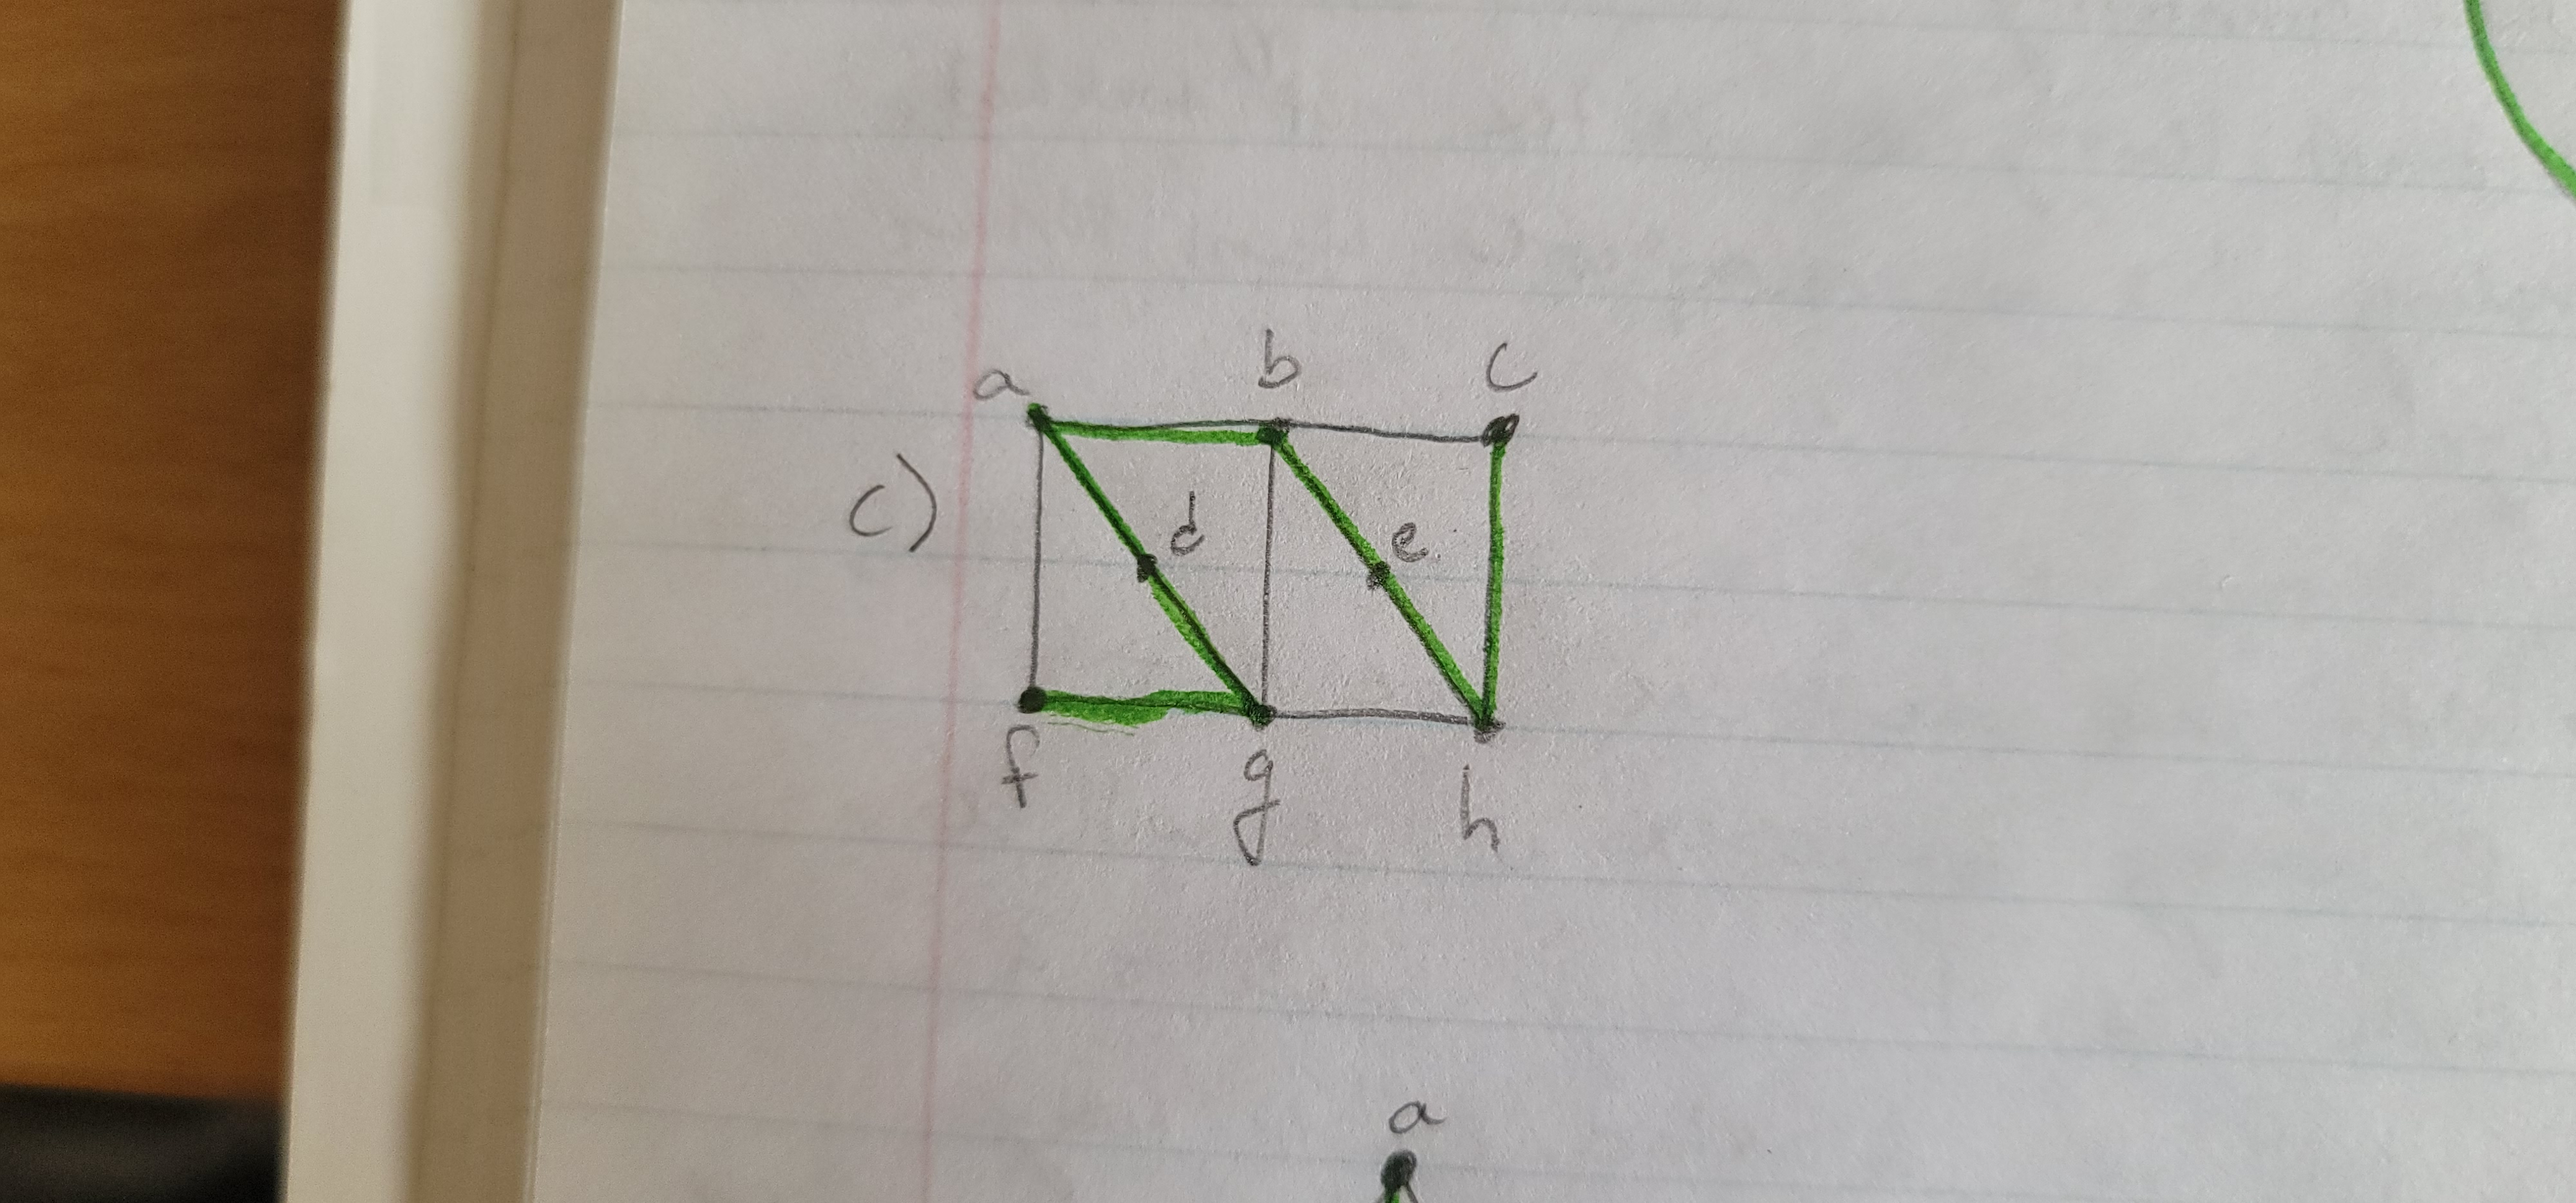 a b c
c) d e
f g h
a